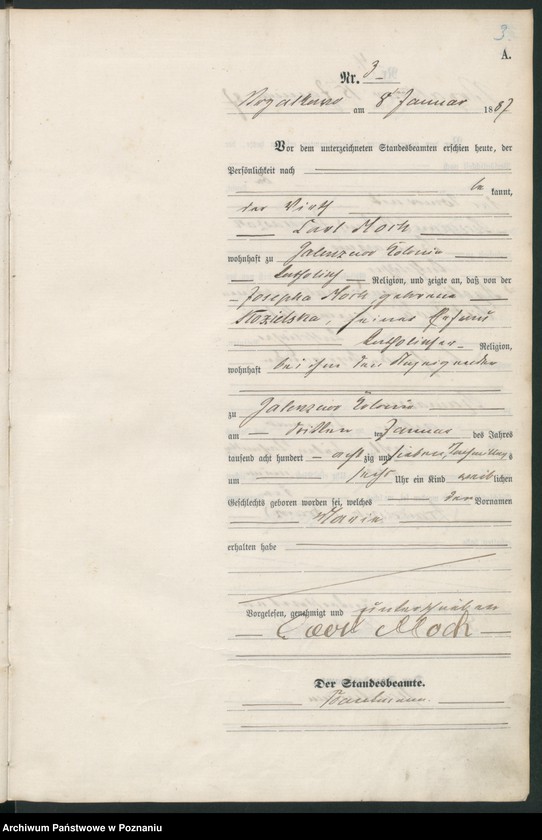 3.
A.
Nr. 3
am 8ten Januar 1887
Vor dem unterzeichneten Standesbeamten erschien heute, der
Persönlichkeit nach
be kannt,
der Wirth
Carl Moch
wohnhaft zu Kolonie
katholischer Religion, und zeigte an, daß von der
Josepha Moch, geborene
Kozielska, seiner Ehefrau
katholischer Religion,
wohnhaft bei ihm dem Anzeigenden
zu Kolonie
am dritten ten Januar des Jahres
tausend acht hundert acht zig und sieben, Nachmittags
um sechs Uhr ein Kind weiblichen
Geschlechts geboren worden sei, welches den Vornamen
Marie
erhalten habe
Vorgelesen, genehmigt und unterschrieben
Carl Moch
Der Standesbeamte.
Archiwum Państwowe w Poznaniu